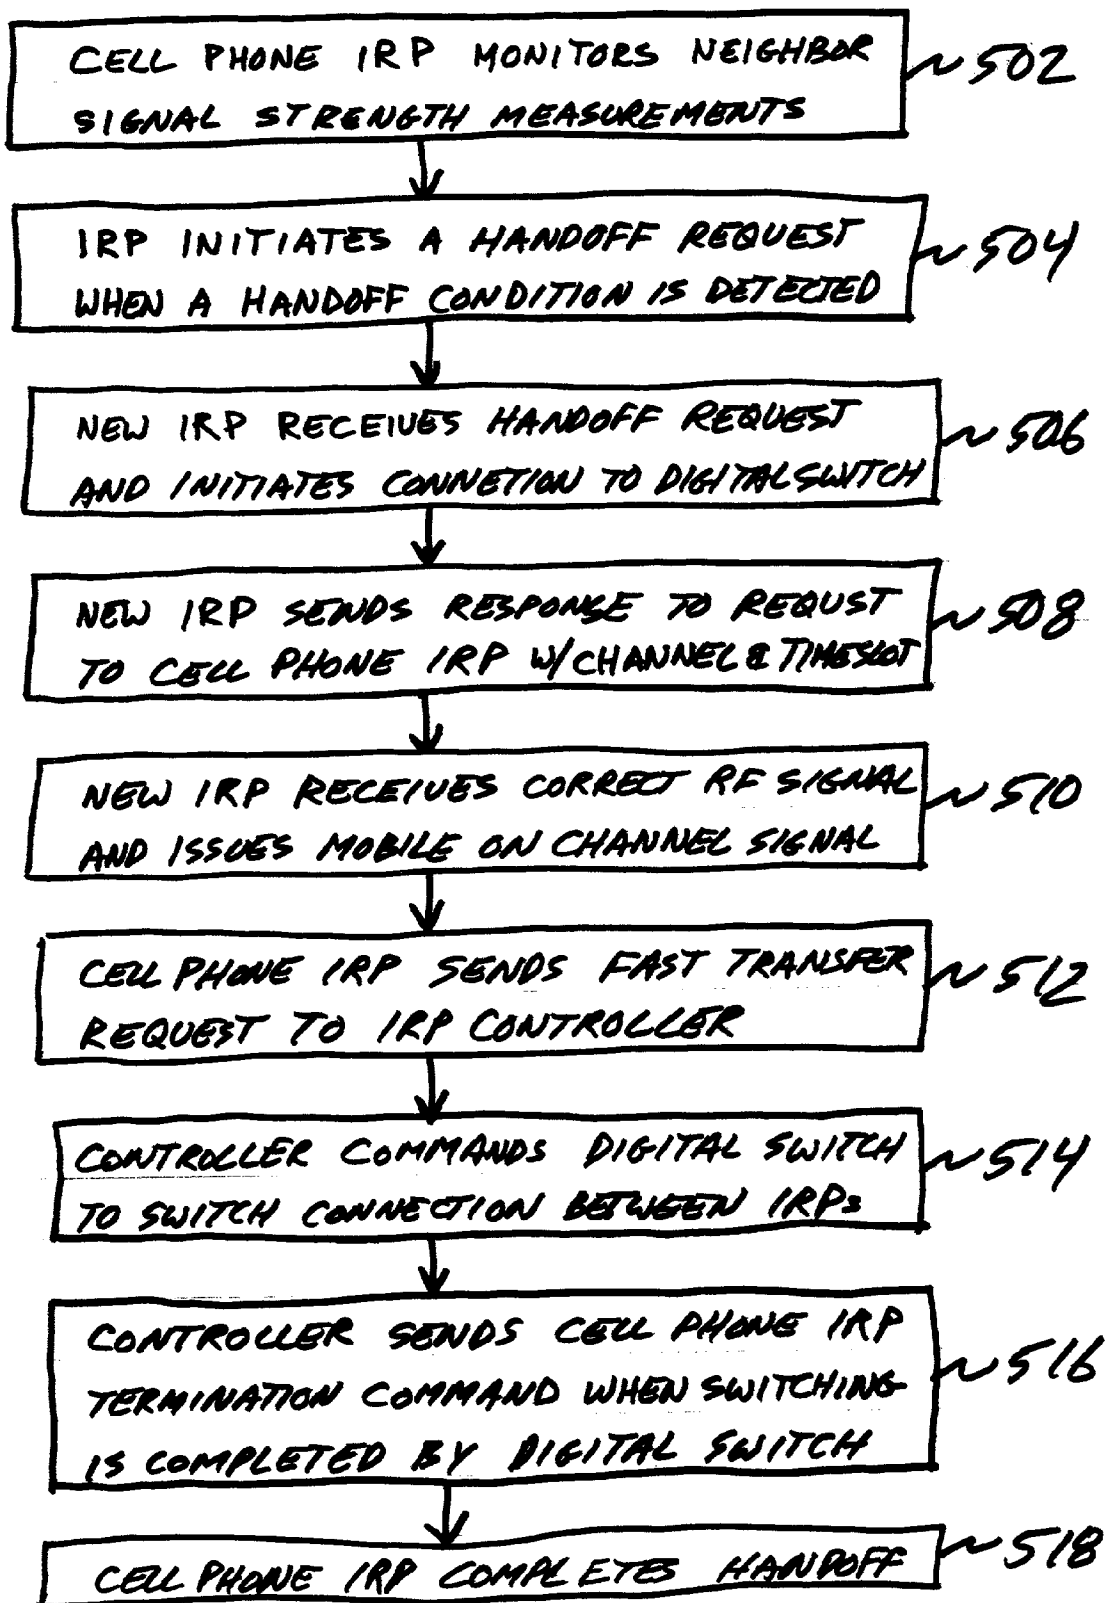 CELL PHONE IRP MONITORS NEIGHBOR
SIGNAL STRENGTH MEASUREMENTS
502
IRP INITIATES A HANDOFF REQUEST
WHEN A HANDOFF CONDITION IS DETECTED
504
NEW IRP RECEIVES HANDOFF REQUEST
AND INITIATES CONNETION TO DIGITAL SWITCH
506
NEW IRP SENDS RESPONSE TO REQUST
TO CELL PHONE IRP W/CHANNEL & TIMESLOT
508
NEW IRP RECEIVES CORRECT RF SIGNAL
AND ISSUES MOBILE ON CHANNEL SIGNAL
510
CELL PHONE IRP SENDS FAST TRANSFER
REQUEST TO IRP CONTROLLER
512
CONTROLLER COMMANDS DIGITAL SWITCH
TO SWITCH CONNECTION BETWEEN IRPs
514
CONTROLLER SENDS CELL PHONE IRP
TERMINATION COMMAND WHEN SWITCHING
IS COMPLETED BY DIGITAL SWITCH
516
CELL PHONE IRP COMPLETES HANDOFF
518